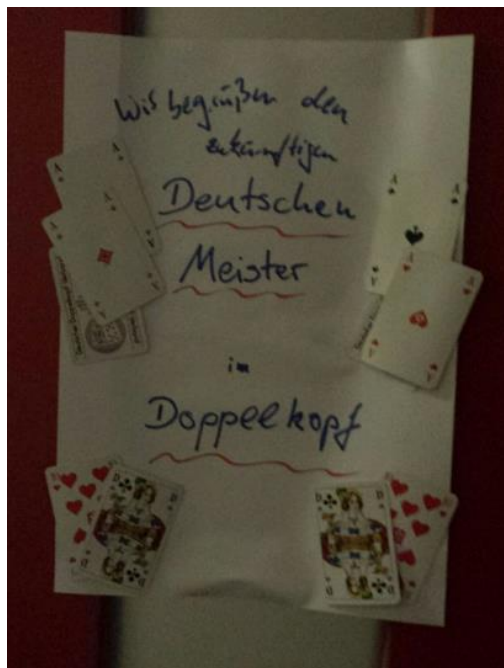 Wir begrüßen den
zukünftigen
Deutschen
Meister
im
Doppelkopf